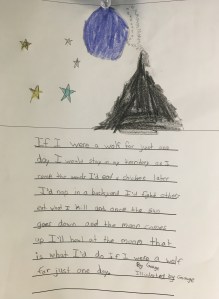 If I were a wolf for just one
day I would stay in my territory or I
roam the woods I'd
I'd nap in a backyard I'd
eat what I kill and once the sun
goes down and the moon comes
up I'll howl at the moon that
is what I'd do if I were a wolf
for just one day
By
Illustrated by